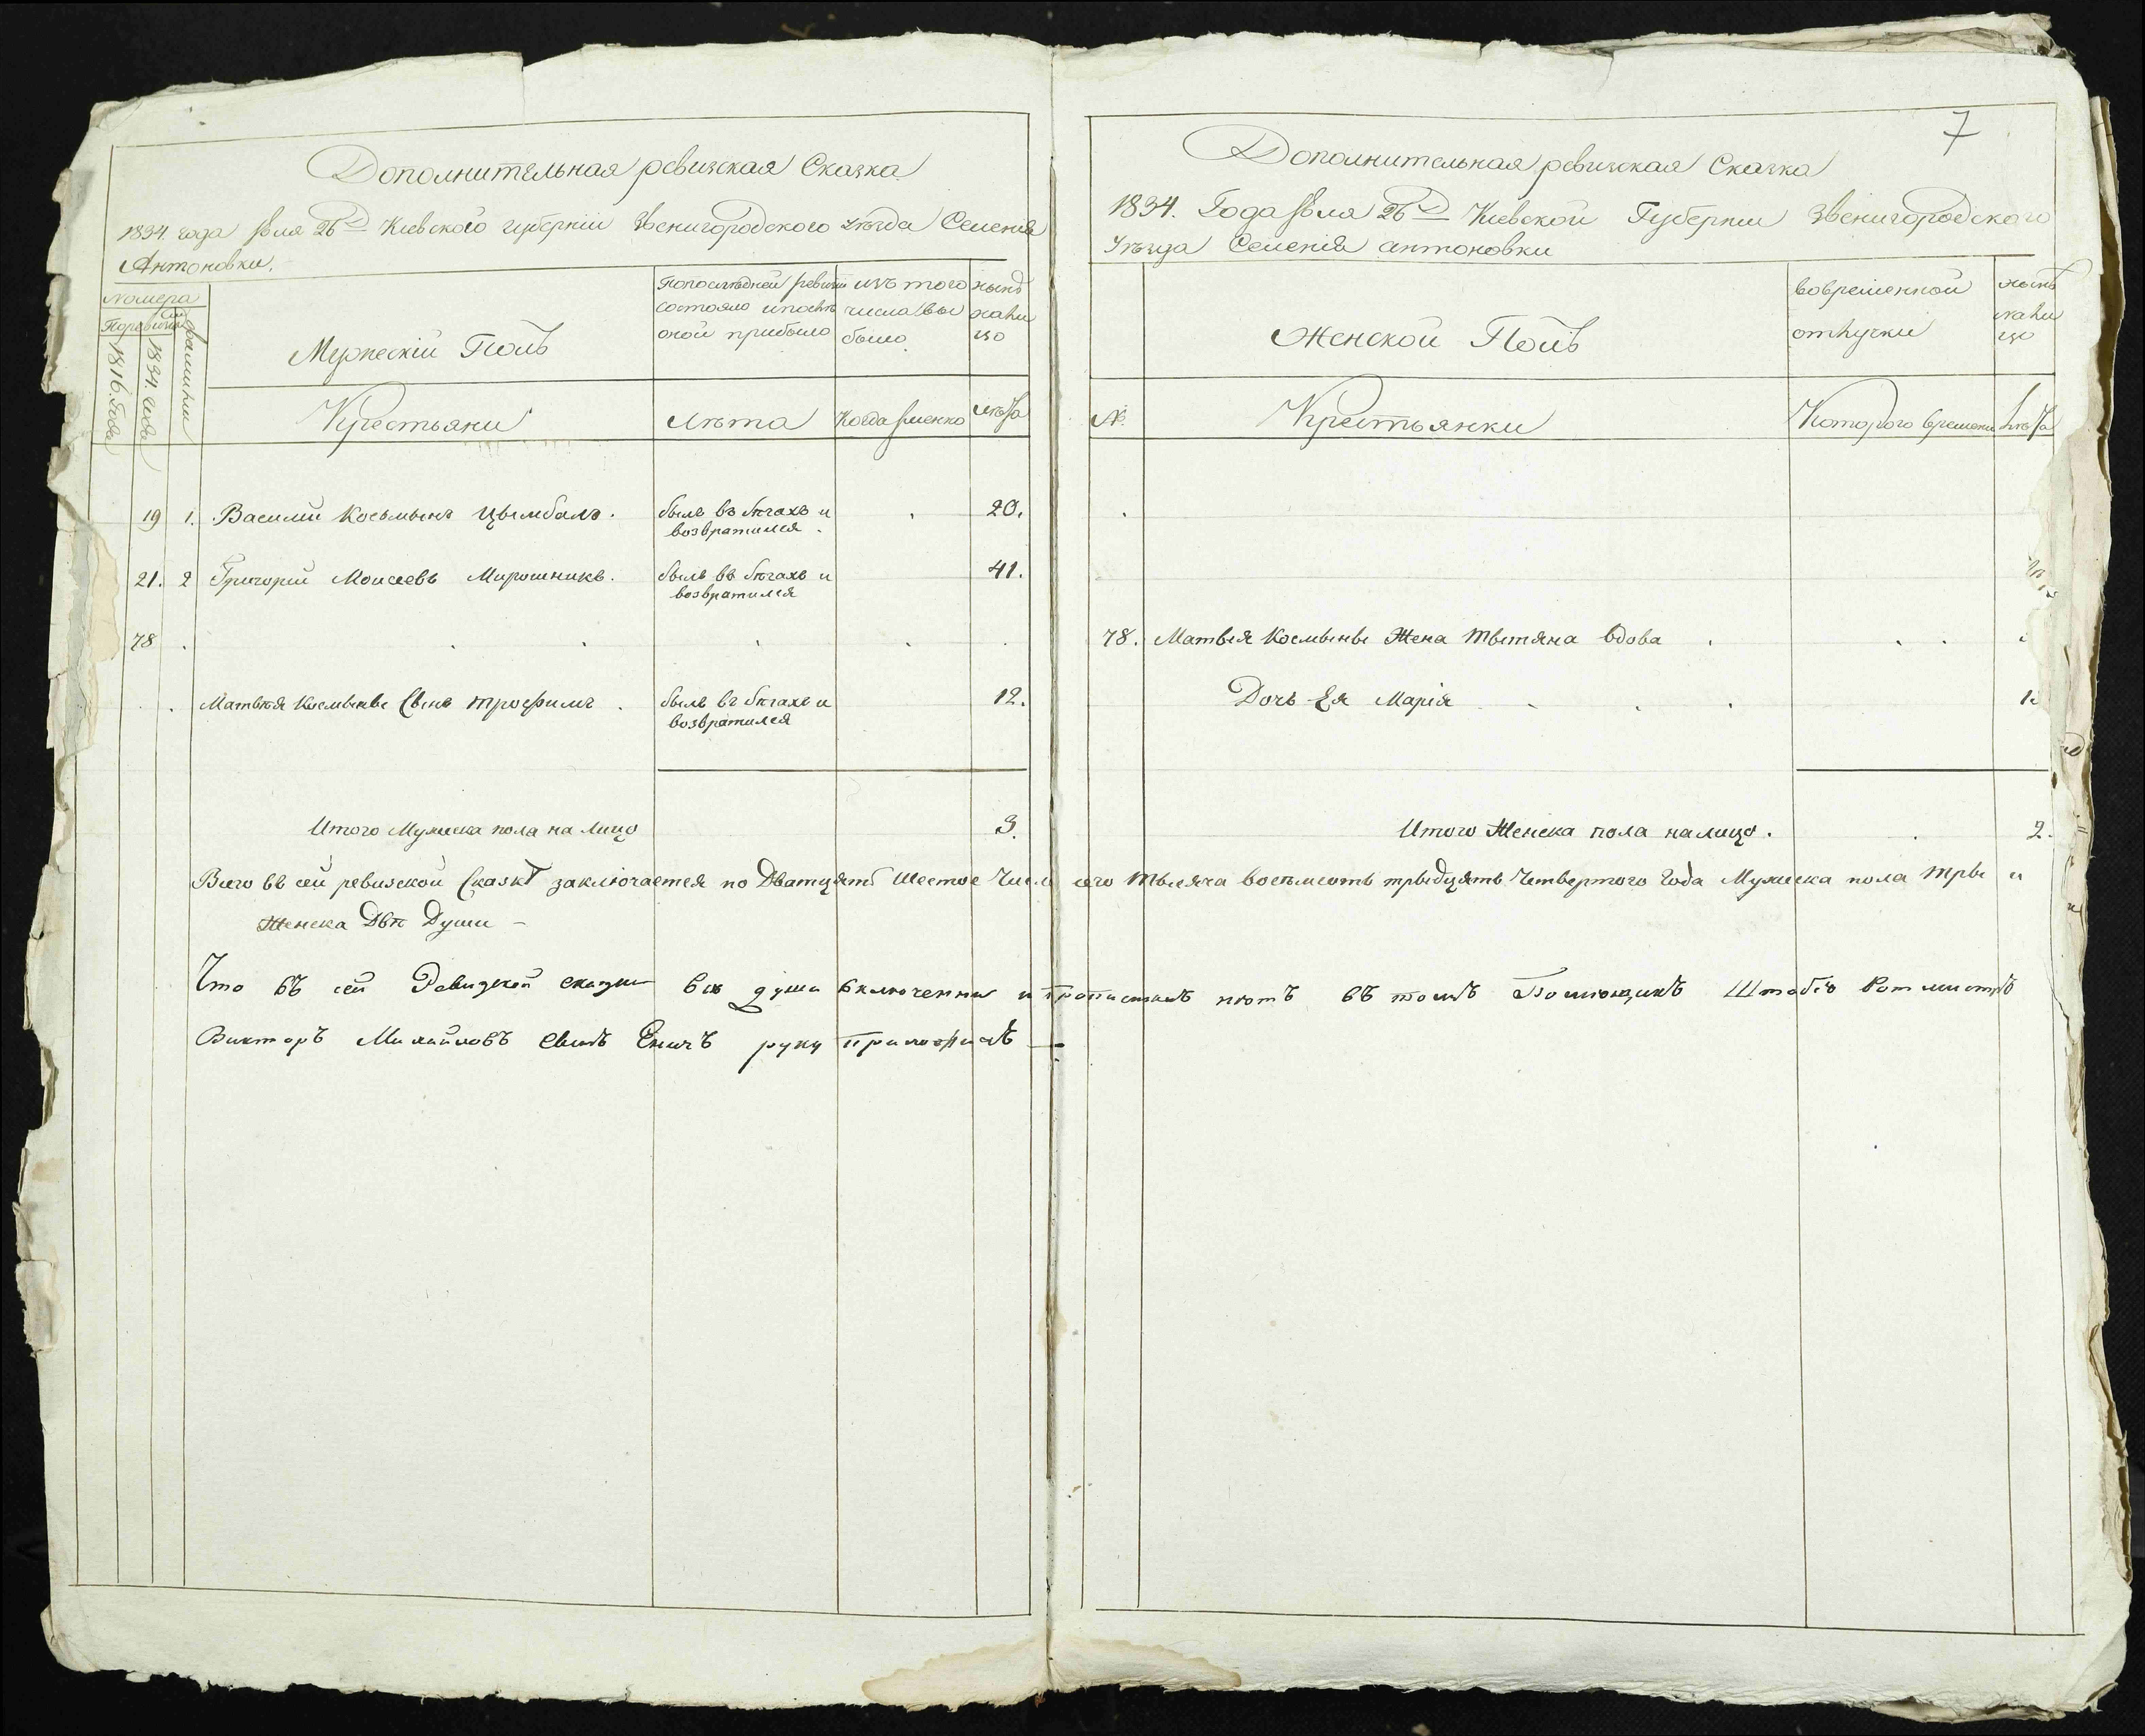 Дополнительная ревизская Сказка
1834. года Іюля 26Д Кіевского губерніи Звенигородского уѣзда Селенія
Антоновки.
Номера
По ревизіи
1816. Года
1834. года
фамиліи
Мужескій Полъ
По последней ревизіи
состояло и после
оной прибыло
изъ того
числа вы
было
нынѣ
на ли
цо
Крестьяни
Лѣта
Когда именно
Лѣта
19 1. Василій Косьминъ Цымбалъ. былъ въ бѣгахъ и 20.
возвратился.
21. 2 Григорій Моисеевъ Мирошникъ. былъ въ бѣгахъ и 41.
возвратился
78
Матвѣя Косьминъ Сынъ Трофимъ. былъ въ бѣгахъ и 12.
возвратился
Итого Мужеска пола на лицо 3.
7
Дополнительная ревизская Сказка
1834. Года Іюля 26Д Кіевской Губерніи Звенигородского
Уѣзда Селенія антоновки
Женской Полъ
вовременной
отлучки
нынѣ
на ли
цо
№
Крестьянки
Которого времени
Лѣта
78. Матвѣя Косьминъ Жена Тытяна вдова
Дочь Ея Марія
Итого Женска пола налицо. 2.
Всего въ сей ревизской Сказкѣ заключается по Дватцятѣ Шестое Число сего Тысяча восемьсотъ трыдцять Четвертого Года Мужеска пола Тры и
Женска Двѣ Души –
Что въ сей Ревизкой сказки всѣ души включенни и прописныхъ нютъ въ томъ Помющикъ Штабсъ Ротмистръ
Викторъ Михайловъ сынъ руку приложилъ —